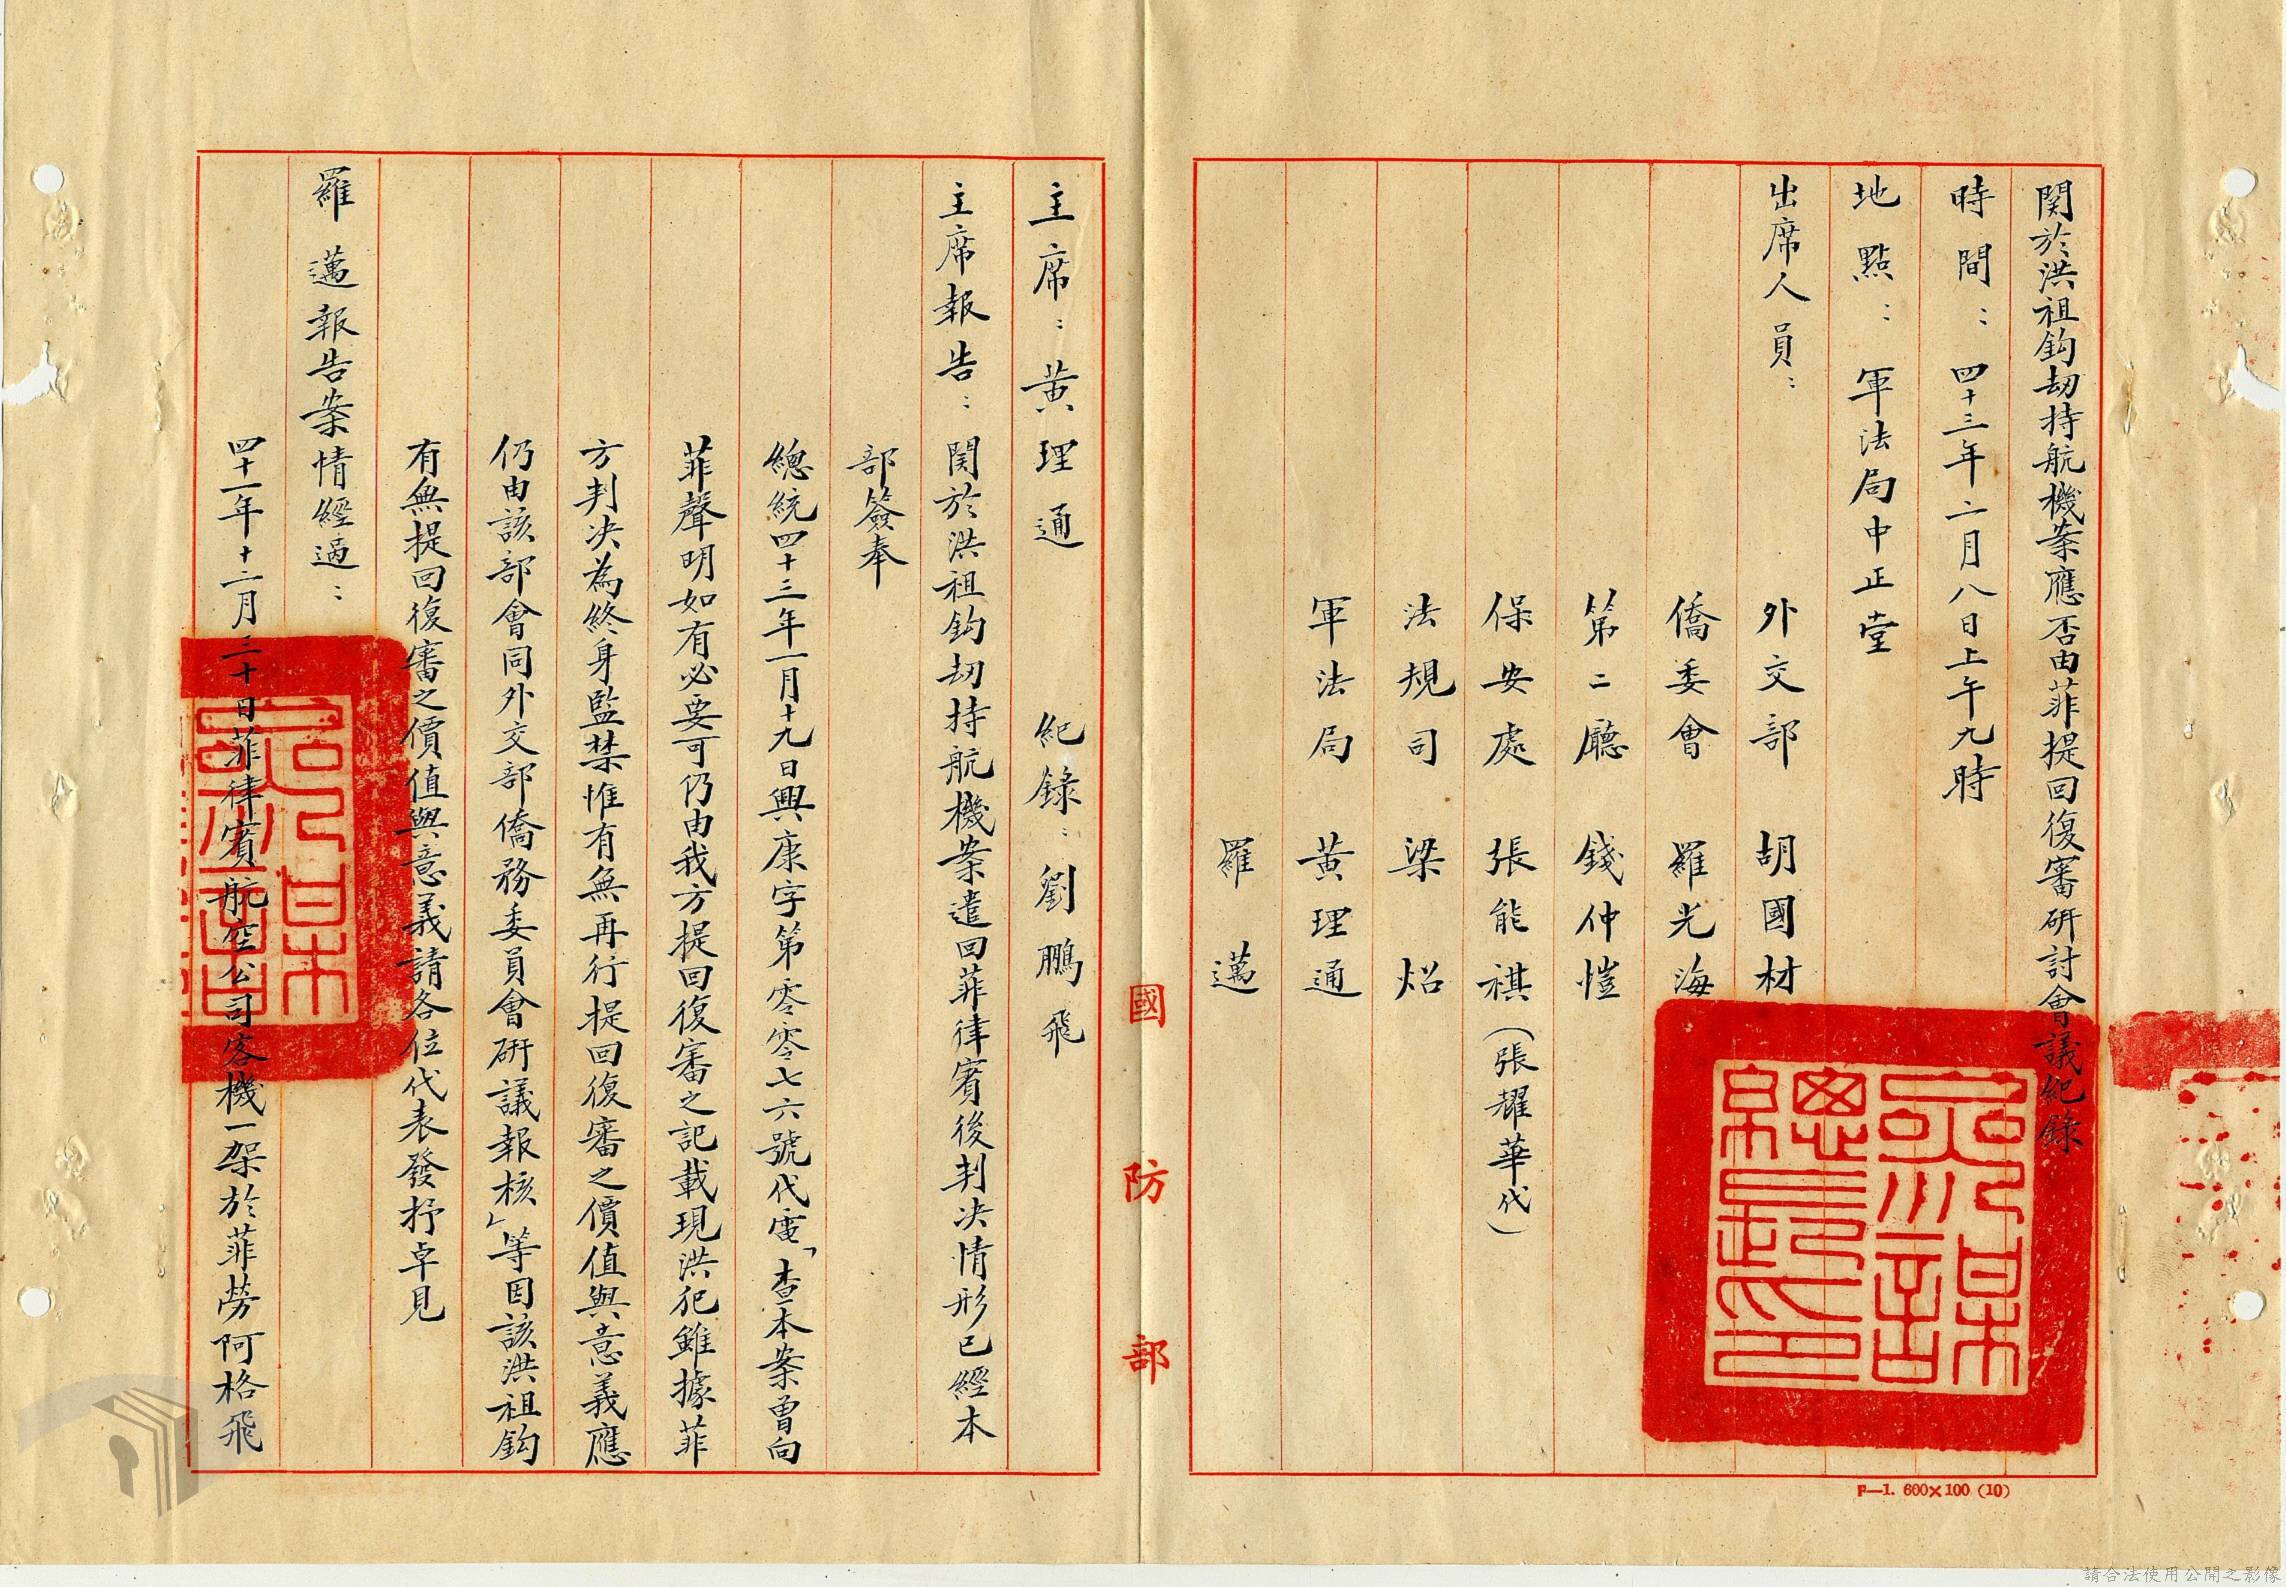 関於洪祖鈎劫持航機案應否由菲提回復審研討會議紀錄
時間：四十三年二月八日上午九時
地點：軍法局中正堂
出席人員：
外交部 胡國材
僑委會 羅光海
第二廳 錢仲愷
保安處 張能祺（張耀華代）
法規司 梁炤
軍法局 黃理通
羅邁
國防部
主席：黃理通 紀錄：劉鵬飛
主席報告：関於洪祖鈎劫持航機案遣回菲律賓後判决情形已經本
部簽奉
總統四十三年一月十九日興康字第零零七六號代電「查本案曾向
菲聲明如有必要可仍由我方提回復審之記載現洪犯雖據菲
方判决為終身監禁惟有無再行提回復審之價值與意義應
仍由該部會同外交部僑務委員會研議報核」等因該洪祖鈎
有無提回復審之價值與意義請各位代表發抒卓見
羅邁報告案情經過：
四十一年十二月三十日菲律賓航空公司客機一架於菲勞阿格飛
參謀總長印
F—1. 600×100 (10)
請合法使用公開之影像